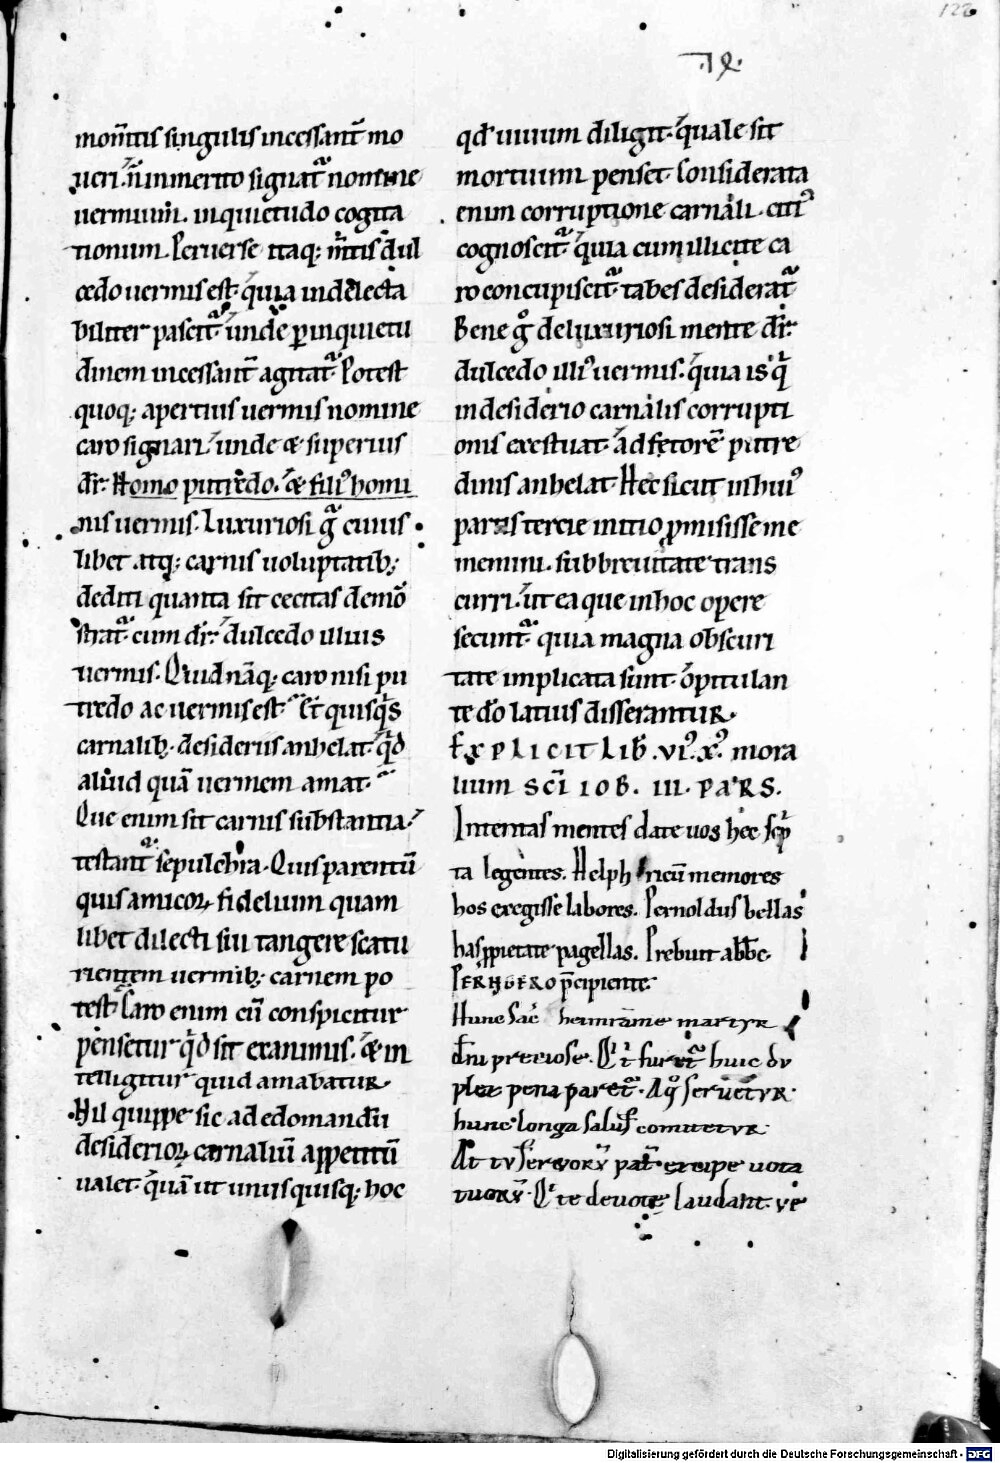 122
mom̅tis singulis incessant᷑ mo
ueri. n̅ inmerito signat᷑ nomine
uermium. inquietudo cogita
tionum. Peruerse itaq; m̅tis dul
cedo uermis est. quia indelecta
biliter pascit᷑ unde ꝑ inquietu
dinem incessant̅ agitat᷑. Potest
quoq; apertius uermis nomine
caro signari. unde & superius
dr̅. Homo putredo. & fili᷒ homi
nis uermis. Luxuriosi g̊ cuius
libet atq; carnis uoluptatib;
dediti quanta sit cecitas demo̅
strat᷑. cum dr̅. dulcedo illius
uermis. Quid na̅q; caro nisi pu
tredo ac uermis est. Et quisq̇s
carnalib; desideriis anhelat. qd̅
aliud qua̅ uermem amat.
Que enim sit carnis substantia.
testant᷑ sepulchra. Quis parentu̅
quis amicoꝝ fidelium quam
libet dilecti sui tangere scatu
rientem uermib; carnem po
test. Caro enim cu̅ conspicitur
pensetur qd̅ sit exanimis. & in
telligitur quid amabatur.
Nil quippe sic ad edomandu̅
desiderioꝝ carnaliu̅ appetitu̅
ualet. qua̅ ut unusquisq; hoc
qd̅ uiuum diligit. quale sit
mortuum penset. Considerata
enim corruptione carnali. citi᷒
cognoscit᷑. quia cum illicite ca
ro concupiscit᷑ tabes desiderat᷑.
Bene g̊ de luxuriosi mente dr̅.
dulcedo illi᷒ uermis. quia is q̇
in desiderio carnalis corrupti
onis exestuat. ad fetore̅ putre
dinis anhelat. Hec sicut in hui᷒
partis tercie initio ꝓmisisse me
memini. sub breuitate trans
curri. ut ea que in hoc opere
secunt᷑. quia magna obscuri
tate implicata sunt. opitulan
te do̅ latius disserantur.
Explicit Lib̅. .VI᷒. X᷒. mora
lium sc̅i Iob. III. pars.
Intentas mentes date uos hec sc̅p
ta legentes. Helph ricu̅ memores
hos exegisse labores. Pernoldus bellas
has ꝓpietate pagellas. Prebuit abb̅c.
Perhgero p̅cipiente.
Hunc Sac̅ heimram̅e martyr
dn̅i preciose. Qi furet᷑ huic du
plex pena paret᷑. Aq̊ seruetur
hunc longa salus comitetur.
At tu seruoru̅ pat̅ excipe uota
tuoru̅. Qi te deuote laudant. ue
Digitalisierung gefördert durch die Deutsche Forschungsgemeinschaft - DFG